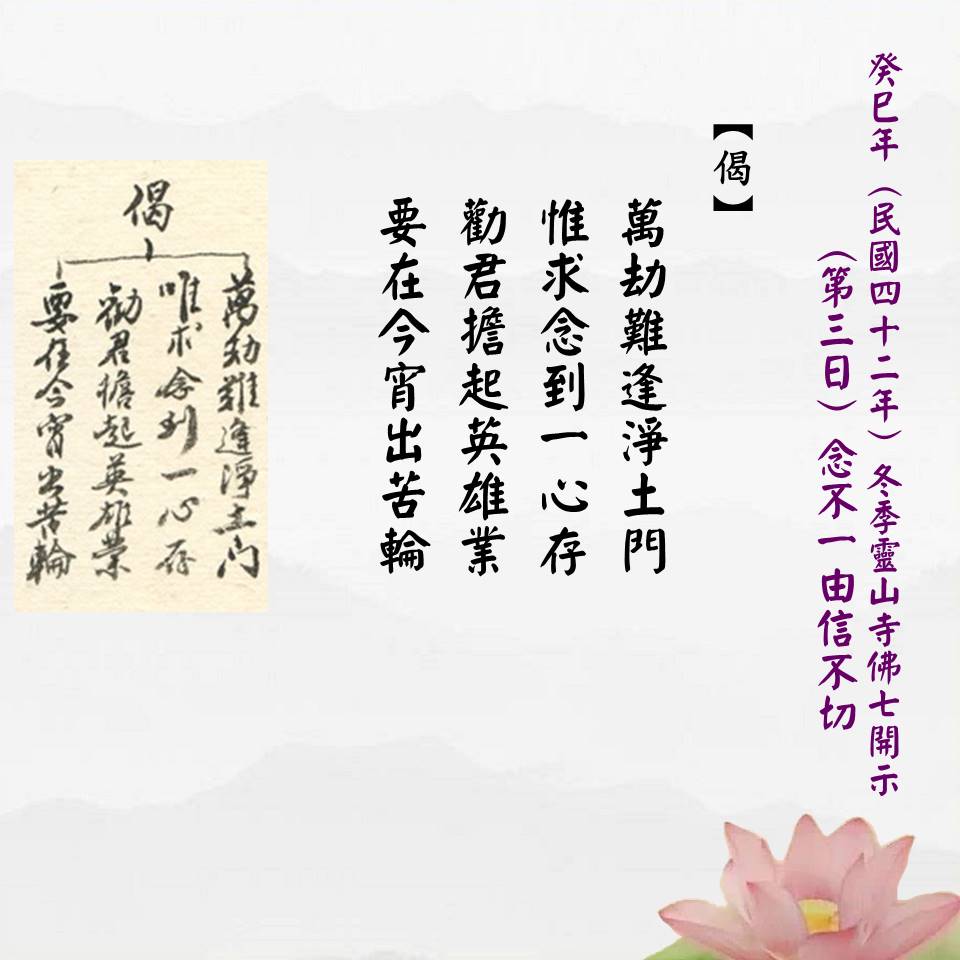 癸巳年（民國四十二年）冬季靈山寺佛七開示
（第三日）念不一由信不切
【偈】
萬劫難逢淨土門
惟求念到一心存
勸君擔起英雄業
要在今宵出苦輪
偈
萬劫難逢淨土门
唯求念到一心存
劝君擔起英雄業
要在今宵出苦輪